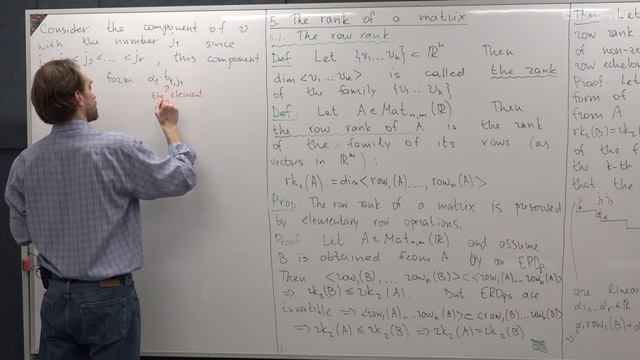 Consider the component of v
with the number j₁ since
< j₂ < ... < jᵣ, this component
form α₁ b₁,ⱼ₁
the element
5. The rank of a matrix
5.1. The row rank
Def: Let {v₁...vₖ} ⊂ ℝⁿ. Then
dim<v₁...vₖ> is called the rank
of the family {v₁...vₖ}
Def: Let A∈Matₙ,ₘ(ℝ). Then
the row rank of A is the rank
of the family of its rows (as
vectors in ℝᵐ):
rk₂(A):=dim<row₁(A),..., rowₙ(A)>
Prop: The row rank of a matrix is preserved
by elementary row operations.
Proof: Let A∈Matₙ,ₘ(ℝ) and assume
B is obtained from A by an EROp.
Then <row₁(B),...rowₙ(B)>⊂<row₁(A)...rowₙ(A)>
⇒ rk₂(B) ≤ rk₂(A). But EROps are
invertible ⇒ <row₁(A)...rowₙ(A)>⊂<row₁(B)...rowₙ(B)>
⇒ rk₂(A) ≤ rk₂(B) ⇒ rk₂(A)=rk₂(B)
Thm: Let
row rank
of non-ze
row echelon
Proof: Let
form of
from A
rk₂(B)=rk₂(
of the f
the k-th
that the
are linear
α₁,...αᵣ∈ℝ
α₁row₁(B)+α